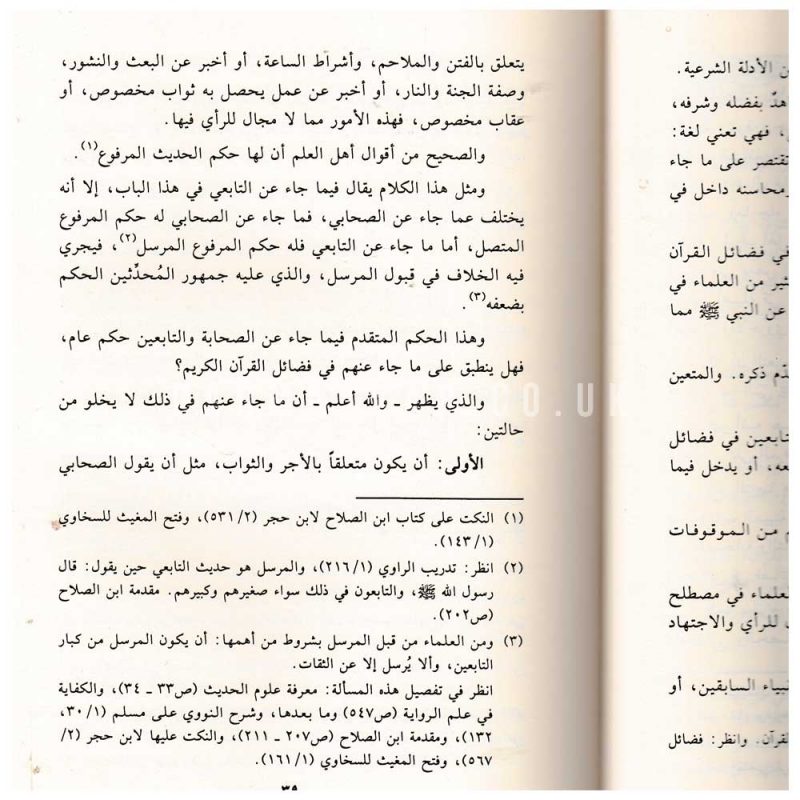 ن الأدلة الشرعية.
هدّ بفضله وشرفه،
، فهي تعني لغة:
تقتصر على ما جاء
ومحاسنه داخل في
في فضائل القرآن
ثير من العلماء في
عن النبي ﷺ مما
دّم ذكره. والمتعين
تابعين في فضائل
عه، أو يدخل فيما
م من الموقوفات
لعلماء في مصطلح
للرأي والاجتهاد
نبياء السابقين، أو
لقرآن. وانظر: فضائل
يتعلق بالفتن والملاحم، وأشراط الساعة، أو أخبر عن البعث والنشور،
وصفة الجنة والنار، أو أخبر عن عمل يحصل به ثواب مخصوص، أو
عقاب مخصوص، فهذه الأمور مما لا مجال للرأي فيها.
والصحيح من أقوال أهل العلم أن لها حكم الحديث المرفوع(١).
ومثل هذا الكلام يقال فيما جاء عن التابعي في هذا الباب، إلا أنه
يختلف عما جاء عن الصحابي، فما جاء عن الصحابي له حكم المرفوع
المتصل، أما ما جاء عن التابعي فله حكم المرفوع المرسل(٢)، فيجري
فيه الخلاف في قبول المرسل، والذي عليه جمهور المُحدِّثين الحكم
بضعفه(٣).
وهذا الحكم المتقدم فيما جاء عن الصحابة والتابعين حكم عام،
فهل ينطبق على ما جاء عنهم في فضائل القرآن الكريم؟
والذي يظهر ـ والله أعلم ـ أن ما جاء عنهم في ذلك لا يخلو من
حالتين:
الأولى: أن يكون متعلقاً بالأجر والثواب، مثل أن يقول الصحابي
(١) النكت على كتاب ابن الصلاح لابن حجر (٥٣١/٢)، وفتح المغيث للسخاوي
(١٤٣/١).
(٢) انظر: تدريب الراوي (٢١٦/١)، والمرسل هو حديث التابعي حين يقول: قال
رسول الله ﷺ، والتابعون في ذلك سواء صغيرهم وكبيرهم. مقدمة ابن الصلاح
(ص٢٠٢).
(٣) ومن العلماء من قبل المرسل بشروط من أهمها: أن يكون المرسل من كبار
التابعين، وألا يُرسل إلا عن الثقات.
انظر في تفصيل هذه المسألة: معرفة علوم الحديث (ص٣٣ ـ ٣٤)، والكفاية
في علم الرواية (ص٥٤٧) وما بعدها، وشرح النووي على مسلم (٣٠/١،
١٣٢)، ومقدمة ابن الصلاح (ص٢٠٧ ـ ٢١١)، والنكت عليها لابن حجر (٢/
٥٦٧)، وفتح المغيث للسخاوي (١٦١/١).
CO.UK